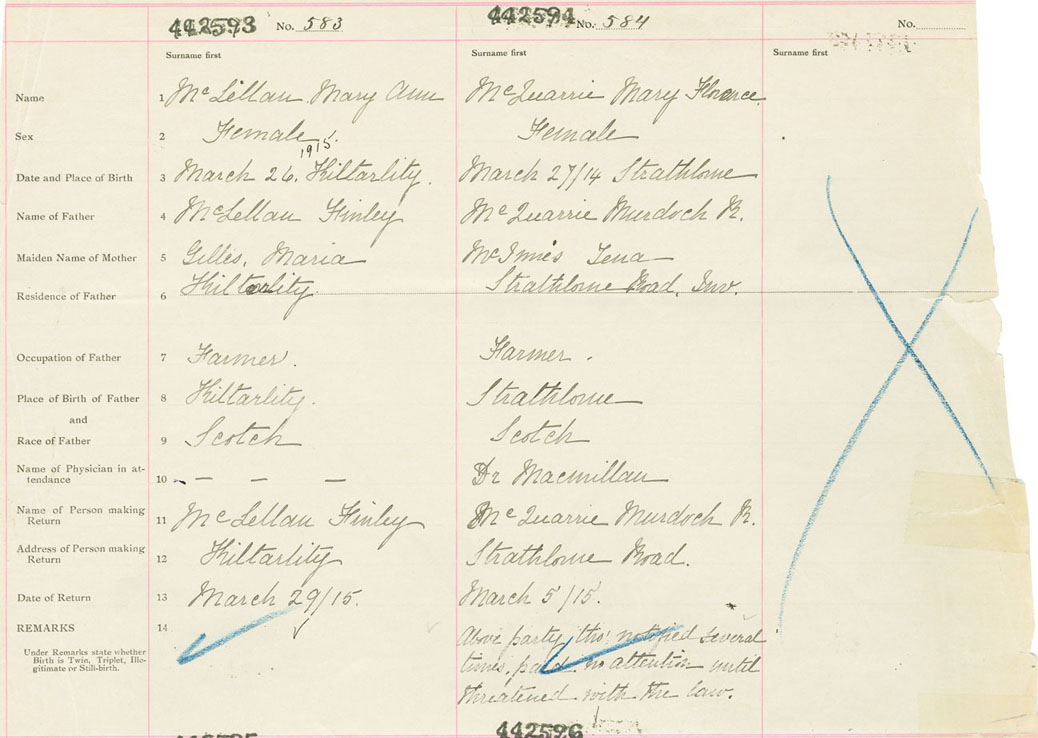 442593 No. 583 442594 No. 584 No.
Surname first Surname first Surname first
Name 1 McLellan Mary Ann McQuarrie Mary Florence
Sex 2 Female Female
1915.
Date and Place of Birth 3 March 26, Kiltarlity. March 27/14 Strathlorne
Name of Father 4 McLellan Finley McQuarrie Murdoch R.
Maiden Name of Mother 5 Gillis, Maria McInnis Tena
Residence of Father 6 Kiltarlity Strathlorne Road, Inv.
Occupation of Father 7 Farmer. Farmer.
Place of Birth of Father 8 Kiltarlity. Strathlorne
and
Race of Father 9 Scotch Scotch
Name of Physician in at-
tendance 10 – – – Dr Macmillan
Name of Person making
Return 11 McLellan Finley McQuarrie Murdoch R.
Address of Person making
Return 12 Kiltarlity Strathlorne Road.
Date of Return 13 March 29/15. March 5/15.
REMARKS 14
Under Remarks state whether
Birth is Twin, Triplet, Ille-
gitimate or Still-birth.
Above party, tho' notified several
times, paid no attention until
threatened with the law.
442596